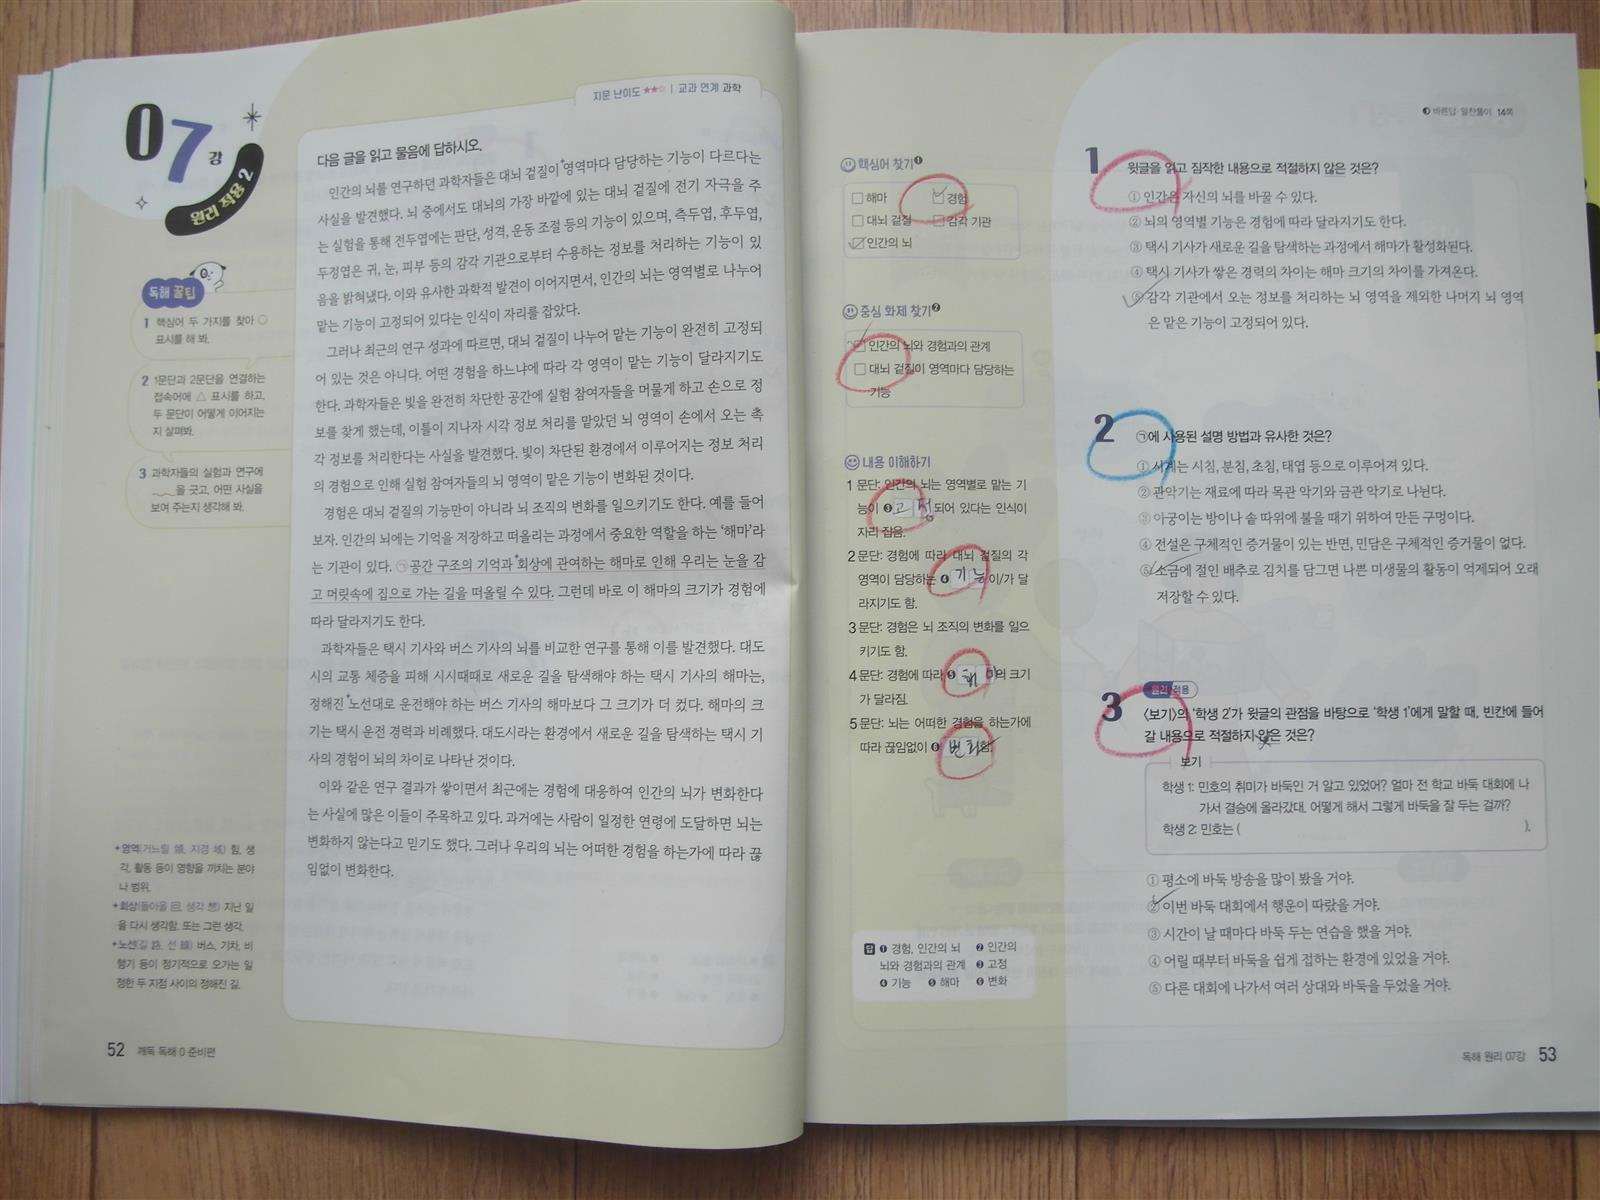 07강
원리 적용 2
지문 난이도 ★★☆ | 교과 연계 과학
다음 글을 읽고 물음에 답하시오.
인간의 뇌를 연구하던 과학자들은 대뇌 겉질이 영역마다 담당하는 기능이 다르다는
사실을 발견했다. 뇌 중에서도 대뇌의 가장 바깥에 있는 대뇌 겉질에 전기 자극을 주
는 실험을 통해 전두엽에는 판단, 성격, 운동 조절 등의 기능이 있으며, 측두엽, 후두엽,
두정엽은 귀, 눈, 피부 등의 감각 기관으로부터 수용하는 정보를 처리하는 기능이 있
음을 밝혀냈다. 이와 유사한 과학적 발견이 이어지면서, 인간의 뇌는 영역별로 나누어
맡는 기능이 고정되어 있다는 인식이 자리를 잡았다.
그러나 최근의 연구 성과에 따르면, 대뇌 겉질이 나누어 맡는 기능이 완전히 고정되
어 있는 것은 아니다. 어떤 경험을 하느냐에 따라 각 영역이 맡는 기능이 달라지기도
한다. 과학자들은 빛을 완전히 차단한 공간에 실험 참여자들을 머물게 하고 손으로 정
보를 찾게 했는데, 이틀이 지나자 시각 정보 처리를 맡았던 뇌 영역이 손에서 오는 촉
각 정보를 처리한다는 사실을 발견했다. 빛이 차단된 환경에서 이루어지는 정보 처리
의 경험으로 인해 실험 참여자들의 뇌 영역이 맡은 기능이 변화된 것이다.
경험은 대뇌 겉질의 기능만이 아니라 뇌 조직의 변화를 일으키기도 한다. 예를 들어
보자. 인간의 뇌에는 기억을 저장하고 떠올리는 과정에서 중요한 역할을 하는 '해마'라
는 기관이 있다. ㉠공간 구조의 기억과 회상에 관여하는 해마로 인해 우리는 눈을 감
고 머릿속에 집으로 가는 길을 떠올릴 수 있다. 그런데 바로 이 해마의 크기가 경험에
따라 달라지기도 한다.
과학자들은 택시 기사와 버스 기사의 뇌를 비교한 연구를 통해 이를 발견했다. 대도
시의 교통 체증을 피해 시시때때로 새로운 길을 탐색해야 하는 택시 기사의 해마는,
정해진 노선대로 운전해야 하는 버스 기사의 해마보다 그 크기가 더 컸다. 해마의 크
기는 택시 운전 경력과 비례했다. 대도시라는 환경에서 새로운 길을 탐색하는 택시 기
사의 경험이 뇌의 차이로 나타난 것이다.
이와 같은 연구 결과가 쌓이면서 최근에는 경험에 대응하여 인간의 뇌가 변화한다
는 사실에 많은 이들이 주목하고 있다. 과거에는 사람이 일정한 연령에 도달하면 뇌는
변화하지 않는다고 믿기도 했다. 그러나 우리의 뇌는 어떠한 경험을 하는가에 따라 끊
임없이 변화한다.
독해 꿀팁
1 핵심어 두 가지를 찾아 ○
표시를 해 봐.
2 1문단과 2문단을 연결하는
접속어에 △ 표시를 하고,
두 문단이 어떻게 이어지는
지 살펴봐.
3 과학자들의 실험과 연구에
을 긋고, 어떤 사실을
보여 주는지 생각해 봐.
+영역(거느릴 領, 지경 域) 힘, 생
각, 활동 등이 영향을 끼치는 분야
나 범위.
+회상(돌아올 回, 생각 想) 지난 일
을 다시 생각함. 또는 그런 생각.
+노선(길 路, 선 線) 버스, 기차, 비
행기 등이 정기적으로 오가는 일
정한 두 지점 사이의 정해진 길.
52 깨독 독해 0 준비편
바른답·알찬풀이 14쪽
핵심어 찾기❶
□ 해마 □ 경험
□ 대뇌 겉질 □ 감각 기관
□ 인간의 뇌
중심 화제 찾기❷
□ 인간의 뇌와 경험과의 관계
□ 대뇌 겉질이 영역마다 담당하는
기능
내용 이해하기
1문단: 인간의 뇌는 영역별로 맡는 기
능이 ❸ 고정 되어 있다는 인식이
자리 잡음.
2문단: 경험에 따라 대뇌 겉질의 각
영역이 담당하는 ❹ 기능 이/가 달
라지기도 함.
3문단: 경험은 뇌 조직의 변화를 일으
키기도 함.
4문단: 경험에 따라 ❺ 해마 의 크기
가 달라짐.
5문단: 뇌는 어떠한 경험을 하는가에
따라 끊임없이 ❻ 변화 함.
답 ❶ 경험, 인간의 뇌 ❷ 인간의
뇌와 경험과의 관계 ❸ 고정
❹ 기능 ❺ 해마 ❻ 변화
1 윗글을 읽고 짐작한 내용으로 적절하지 않은 것은?
① 인간은 자신의 뇌를 바꿀 수 있다.
② 뇌의 영역별 기능은 경험에 따라 달라지기도 한다.
③ 택시 기사가 새로운 길을 탐색하는 과정에서 해마가 활성화된다.
④ 택시 기사가 쌓은 경력의 차이는 해마 크기의 차이를 가져온다.
⑤ 감각 기관에서 오는 정보를 처리하는 뇌 영역을 제외한 나머지 뇌 영역
은 맡은 기능이 고정되어 있다.
2 ㉠에 사용된 설명 방법과 유사한 것은?
① 시계는 시침, 분침, 초침, 태엽 등으로 이루어져 있다.
② 관악기는 재료에 따라 목관 악기와 금관 악기로 나뉜다.
③ 아궁이는 방이나 솥 따위에 불을 때기 위하여 만든 구멍이다.
④ 전설은 구체적인 증거물이 있는 반면, 민담은 구체적인 증거물이 없다.
⑤ 소금에 절인 배추로 김치를 담그면 나쁜 미생물의 활동이 억제되어 오래
저장할 수 있다.
원리 적용
3 <보기>의 '학생 2'가 윗글의 관점을 바탕으로 '학생 1'에게 말할 때, 빈칸에 들어
갈 내용으로 적절하지 않은 것은?
보기
학생 1: 민호의 취미가 바둑인 거 알고 있었어? 얼마 전 학교 바둑 대회에 나
가서 결승에 올라갔대. 어떻게 해서 그렇게 바둑을 잘 두는 걸까?
학생 2: 민호는 ( ).
① 평소에 바둑 방송을 많이 봤을 거야.
② 이번 바둑 대회에서 행운이 따랐을 거야.
③ 시간이 날 때마다 바둑 두는 연습을 했을 거야.
④ 어릴 때부터 바둑을 쉽게 접하는 환경에 있었을 거야.
⑤ 다른 대회에 나가서 여러 상대와 바둑을 두었을 거야.
독해 원리 07강 53